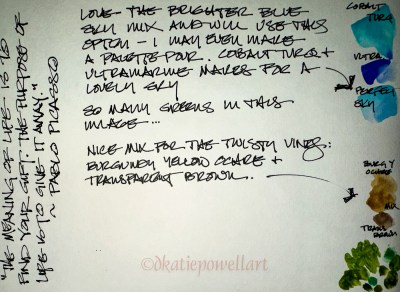 "THE MEANING OF LIFE IS TO
FIND YOUR GIFT. THE PURPOSE OF
LIFE IS TO GIVE IT AWAY."
~ PABLO PICASSO
LOVE THE BRIGHTER BLUE
SKY MIX AND WILL USE THIS
OPTION – I MAY EVEN MAKE
A PALETTE POUR. COBALT TURQ +
ULTRAMARINE MAKES FOR A
LOVELY SKY
SO MANY GREENS IN THIS
IMAGE...
NICE MIX FOR THE TWISTY VINES:
BURGUNDY YELLOW OCHRE +
TRANSPARENT BROWN.
COBALT
TURQ
ULTRA
PERFECT
SKY
BURG Y
OCHRE
MIX
TRANS
BROWN
©dkatiepowellart